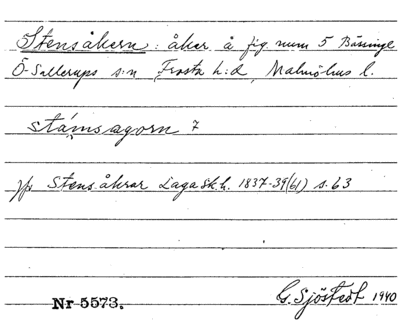 Stensåkern : åker å fig num 5 Bässinge
Ö-Sallerups s:n Frosta h:d, Malmöhus l.
stamsagorn 7
jfr Stens.åkrar Laga Sk.h. 1837-39(61) s.63
G. Sjöstedt 1940
Nr 5573.